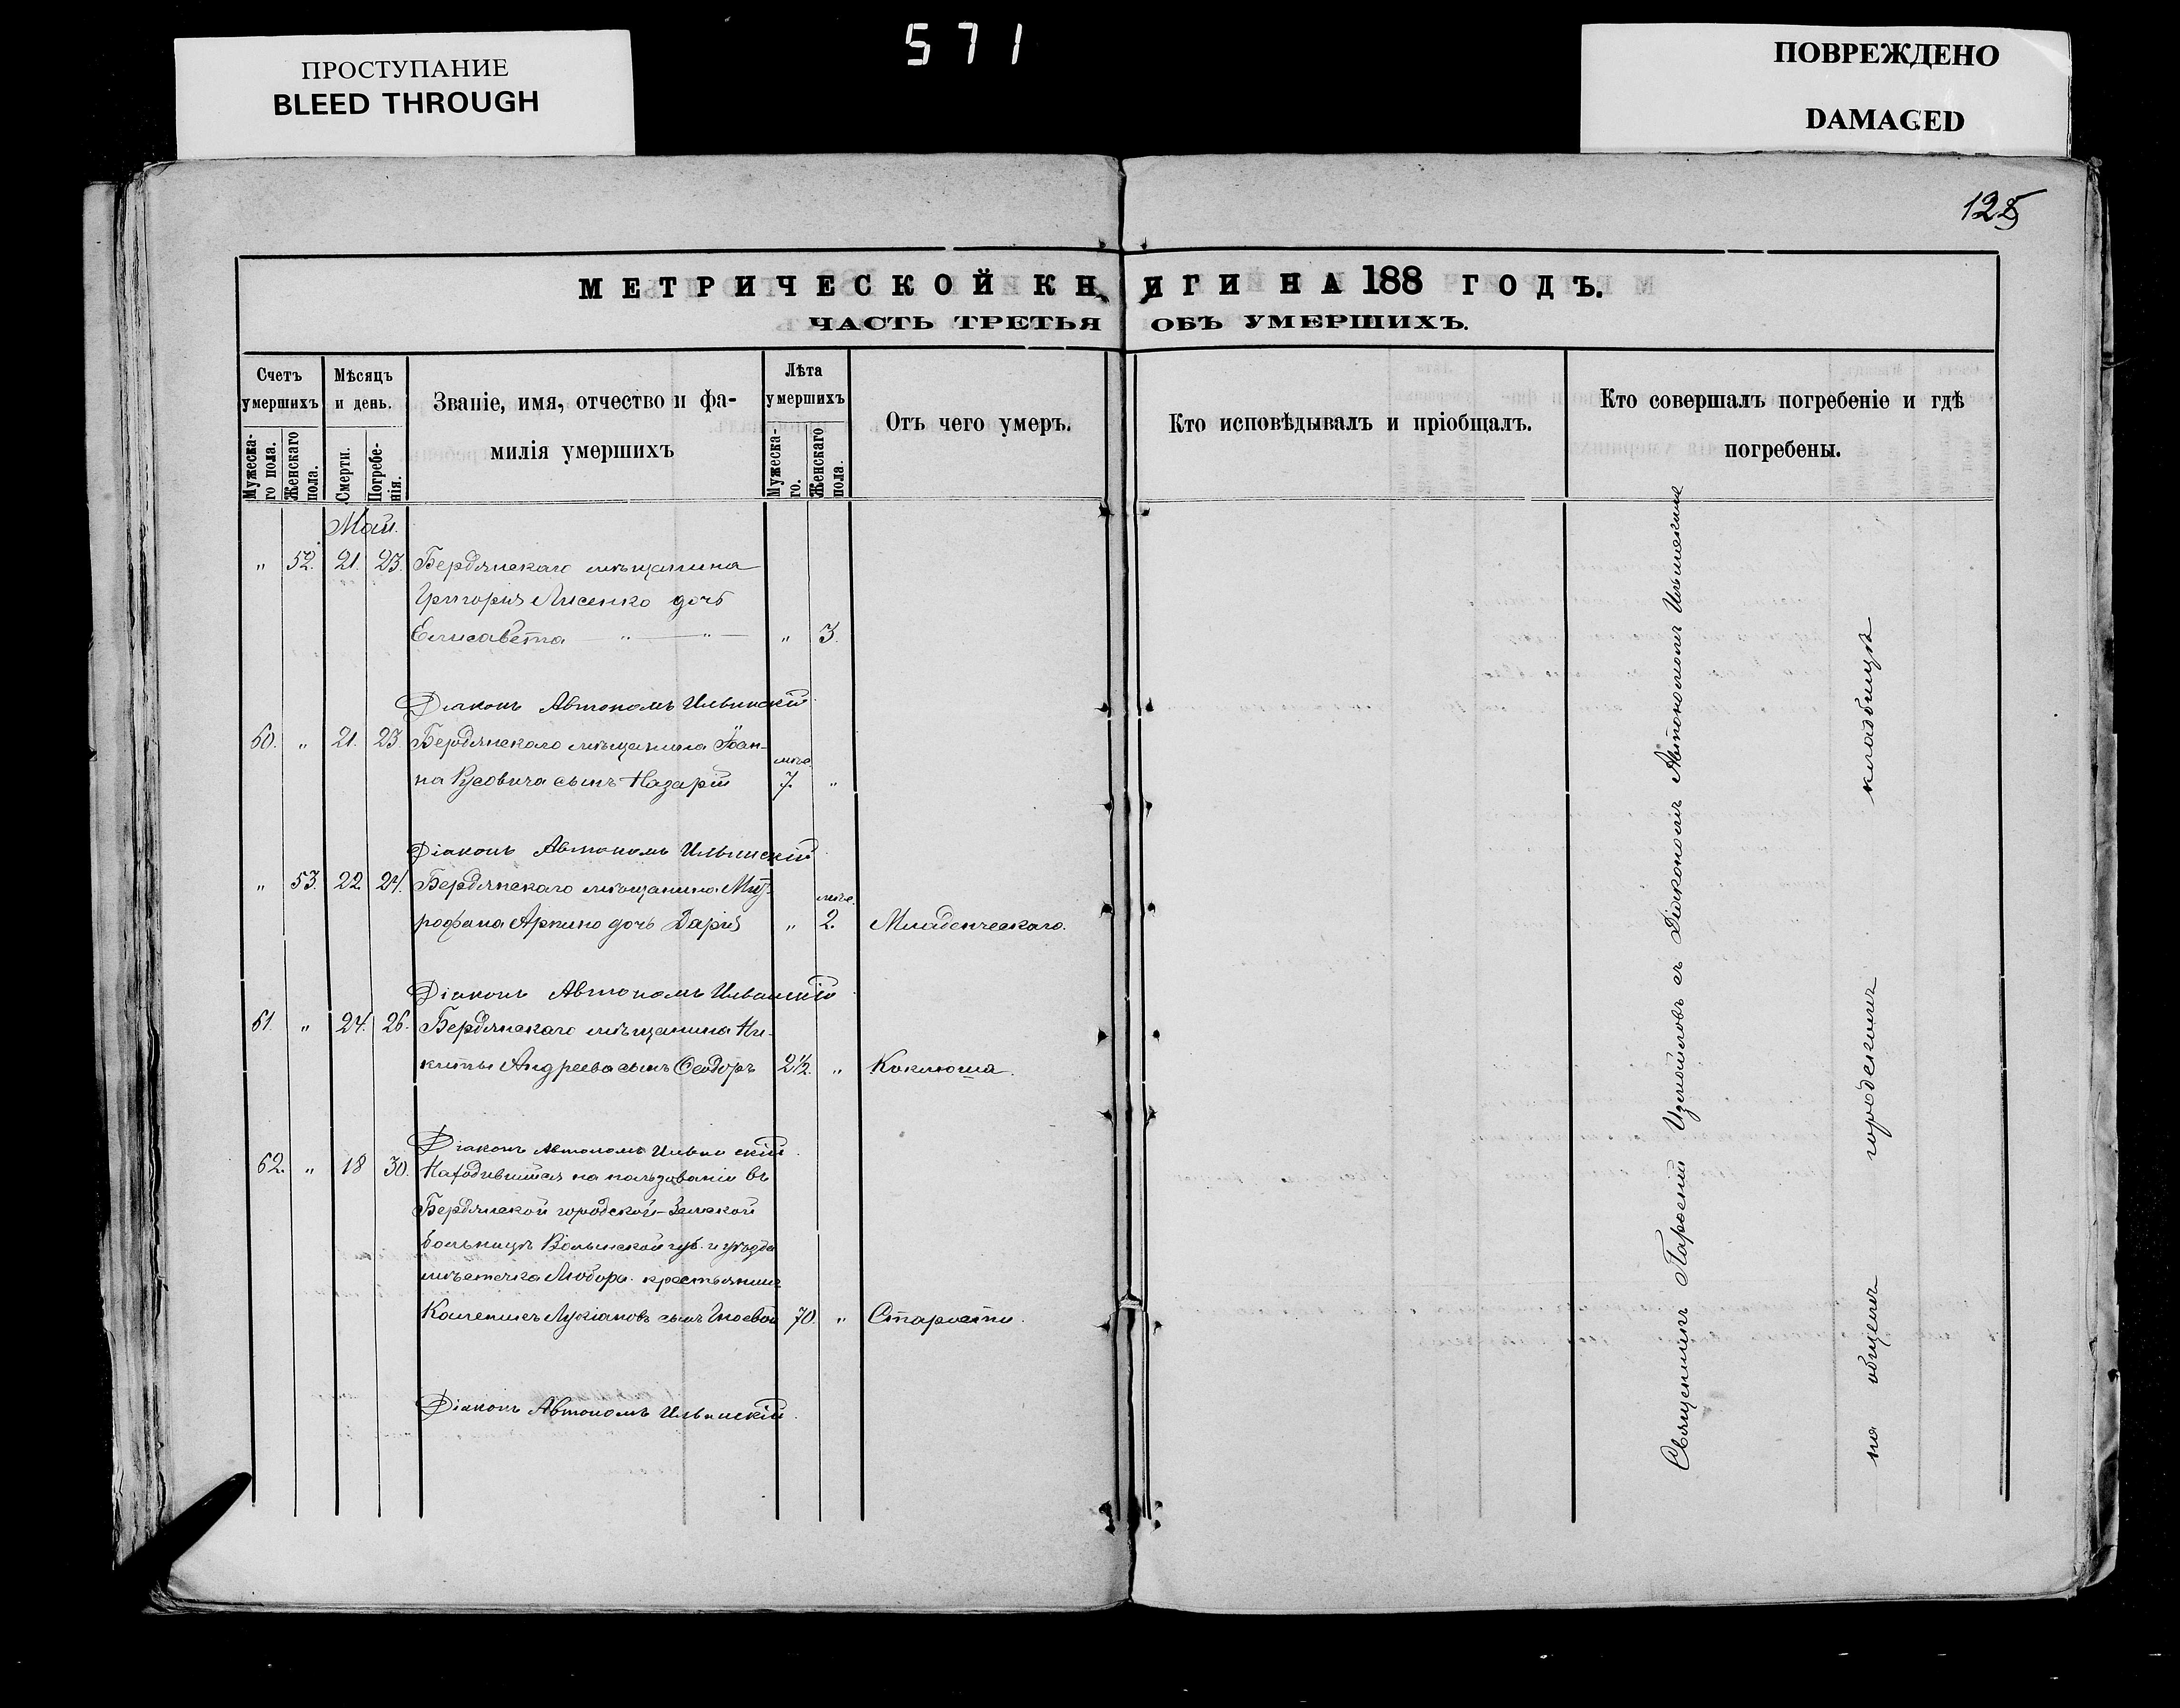 571
ПРОСТУПАНИЕ
BLEED THROUGH
ПОВРЕЖДЕНО
DAMAGED
125
МЕТРИЧЕСКОЙ КНИГИ НА 188 ГОДЪ.
ЧАСТЬ ТРЕТЬЯ ОБЪ УМЕРШИХЪ.
Счетъ умершихъ
Мужеска-го пола.
Женскаго пола.
Мѣсяцъ и день.
Смерти.
Погребе-нія.
Званіе, имя, отчество и фа-
милія умершихъ
Лѣта умершихъ
Мужеска-го.
Женскаго пола.
Отъ чего умеръ.
Кто исповѣдывалъ и пріобщалъ.
Кто совершалъ погребеніе и гдѣ
погребены.
Май.
" 52. 21. 23. Бердянскаго мѣщанина
Григорія Лисенко дочь
Елисавета " " " 3.
Діаконъ Автономъ Ильинскій
60. " 21. 23. Бердянскаго мѣщанина Іоан-
на Русовича сынъ Назарій мѣс. 7. "
Діаконъ Автономъ Ильинскій
" 53. 22. 24. Бердянскаго мѣщанина Мит-
рофана дочь Дарія " мѣс. 2. Младенческаго.
Діаконъ Автономъ Ильинскій
61. " 24. 26. Бердянскаго мѣщанина Ни-
киты Андреева сынъ Ѳеодоръ 2½. " Коклюша.
Діаконъ Автономъ Ильинскій
62. " 18 30. Находившійся на пользованіи въ
Бердянской городской-Земской
больницѣ Волынской губ. и уѣзда
мѣстечка Любора крестьянинъ
Лукіановъ сынъ 70. " Старости.
Діаконъ Автономъ Ильинскій.
Священникъ Парѳеній Измайловъ съ Діакономъ Автономомъ Ильинскимъ
на общемъ городскомъ кладбищѣ